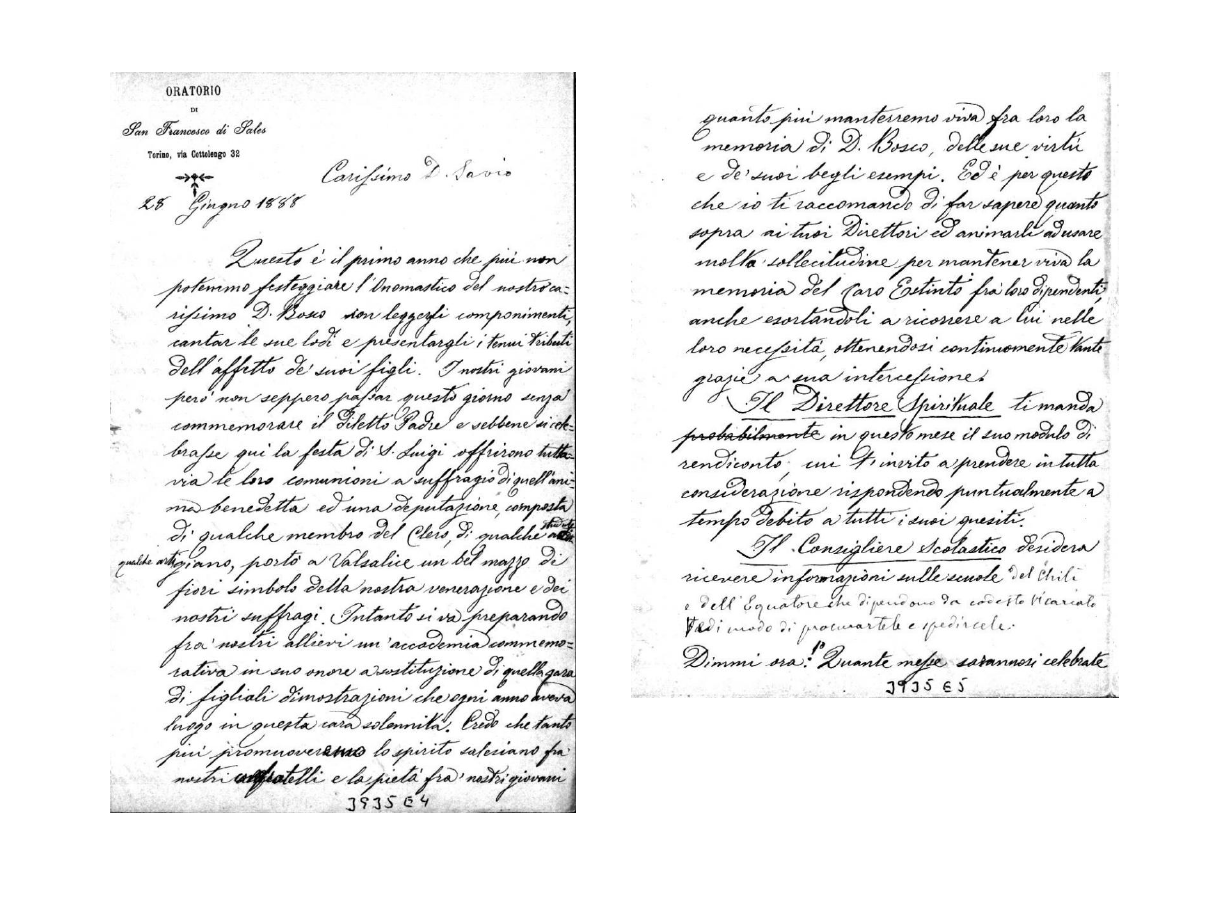 ORATORIO
DI
San Francesco di Sales
Torino, via Cottolengo 32
Carissimo D. Savio
28 Giugno 1888
Questo è il primo anno che più non
potemmo festeggiare l'Onomastico del nostro ca-
rissimo D. Bosco con leggersi componimenti,
cantar le sue lodi e presentargli i tenui tributi
dell'affetto de' suoi figli. I nostri giovani
però non seppero passar questo giorno senza
commemorare il diletto Padre e sebbene si cele-
brasse qui la festa di S. Luigi offrirono tutta-
via le loro comunioni a suffragio di quell'ani-
ma benedetta ed una deputazione, composta
di qualche membro del Clero, di qualche
qualche artigiano, portò a Valsalice un bel mazzo di
fiori simbolo della nostra venerazione e dei
nostri suffragi. Intanto si va preparando
fra' nostri allievi un'accademia commemo-
rativa in suo onore a sostituzione di quella gara
di figliali dimostrazioni che ogni anno aveva
luogo in questa cara solennità. Credo che tanto
più promuoveremo lo spirito salesiano fra
nostri confratelli e la pietà fra' nostri giovani
3935 E 4
quanto più manterremo viva fra loro la
memoria di D. Bosco, delle sue virtù
e de' suoi begli esempi. Ed è per questo
che io ti raccomando di far sapere quanto
sopra ai tuoi Direttori ed animarli ad usare
molta sollecitudine per mantener viva la
memoria del Caro Estinto fra loro dipendenti,
anche esortandoli a ricorrere a lui nelle
loro necessità, ottenendosi continuamente tante
grazie a sua intercessione.
Il Direttore Spirituale ti manda
probabilmente in questo mese il suo modulo di
rendiconto; cui t'invito a prendere in tutta
considerazione rispondendo puntualmente a
tempo debito a tutti i suoi quesiti.
Il Consigliere Scolastico desidera
ricevere informazioni sulle scuole del Chilì
e dell'Equatore che dipendono da codesto Vicariato
Vedi modo di procurartele e spedircele.
Dimmi ora: 1º Quante messe saranno si celebrate
3935 E 5